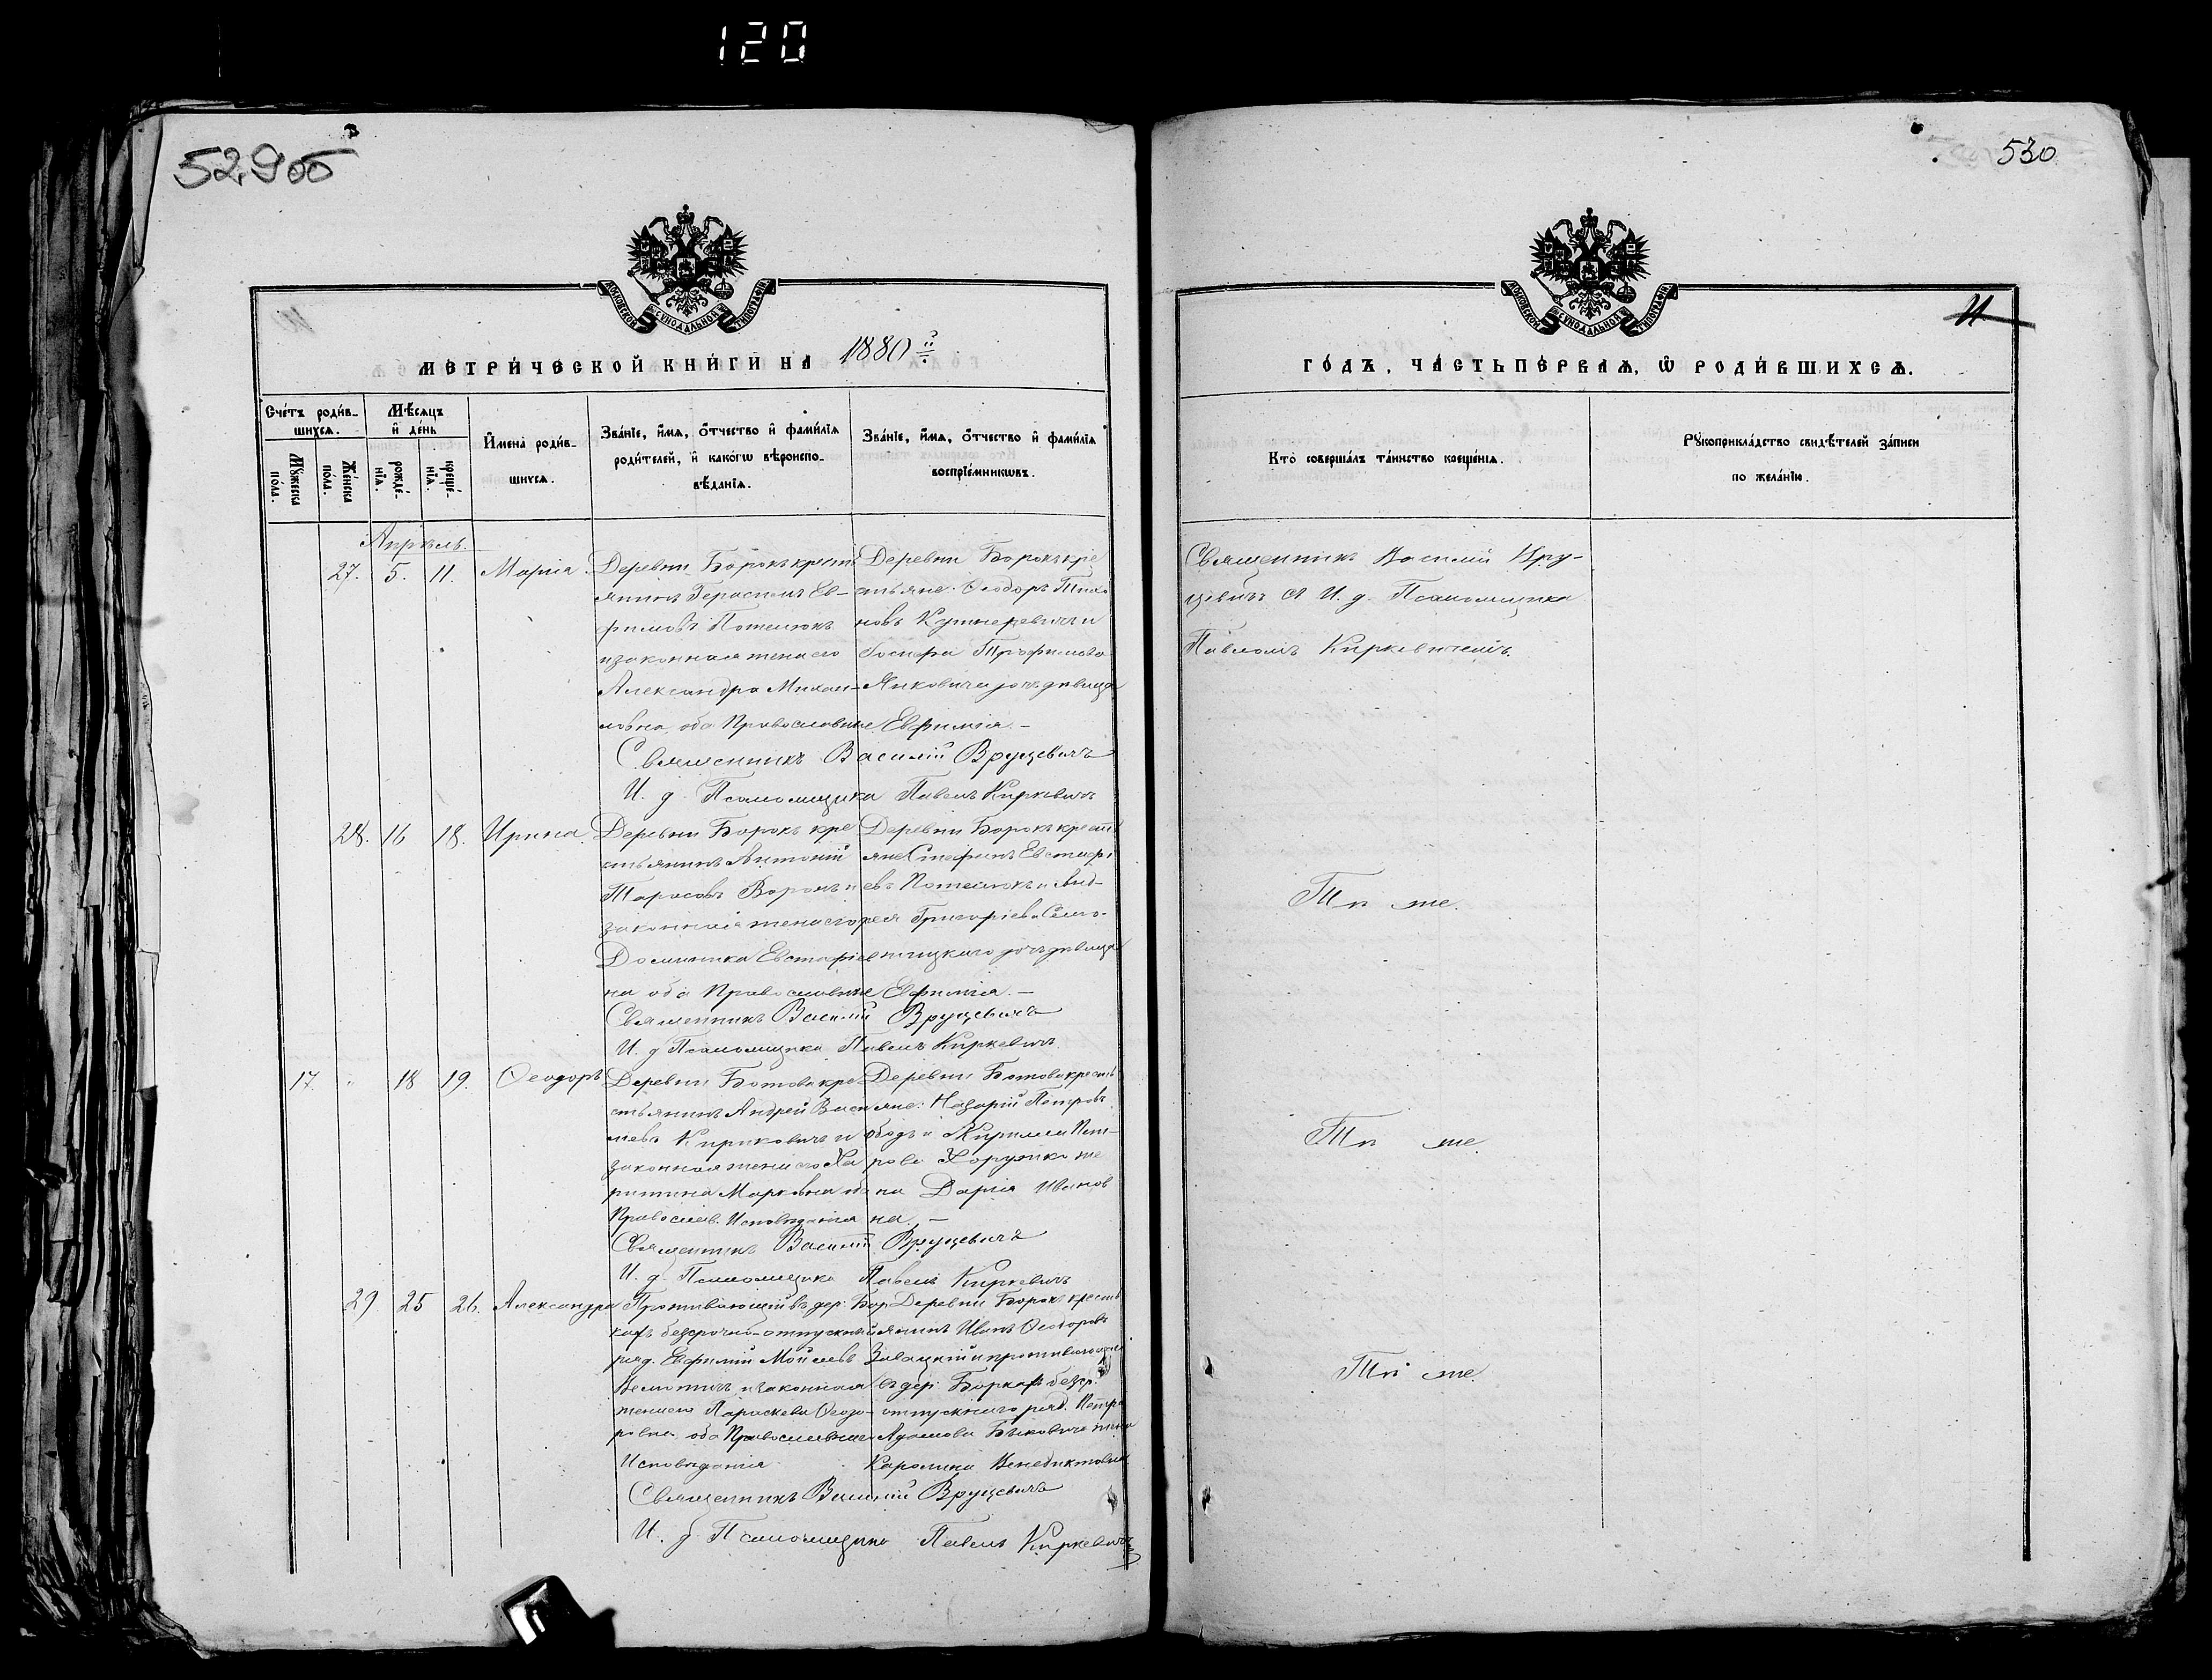 120
52,9об
530
11
МОСКОВСКОЙ СУНОДАЛЬНОЙ ТИПОГРАФІИ
МОСКОВСКОЙ СУНОДАЛЬНОЙ ТИПОГРАФІИ
МЕТРИ́ЧЕСКОЙ КНИ́ГИ НА 1880й
ГО́ДЪ, ЧА́СТЬ ПЕ́РВАѦ, Ѡ҆ РОДИ́ВШИХСѦ.
Сче́тъ роди́в-
шихсѧ.
Мꙋ́жеска по́ла.
Же́нска по́ла.
Мѣ́сѧцъ
и҆ де́нь
рожде́-
нїѧ.
креще́-
нїѧ.
И҆мена̀ роди́в-
шихсѧ.
Зва́нїе, и҆́мѧ, ѻ҆́тчество и҆ фами́лїѧ
роди́телей, и҆ како́гѡ вѣроиспо-
вѣ́данїѧ.
Зва́нїе, и҆́мѧ, ѻ҆́тчество и҆ фами́лїѧ
воспрїе́мникѡвъ.
Кто̀ соверша́лъ та́инство креще́нїѧ.
Рꙋкоприкла́дство свидѣ́телей за́писи
по жела́нїю.
Апрѣль.
27. 5. 11. Марія
Деревни Борокъ крестъ
янинъ Герасимъ Ев-
фимовъ Потеюкъ
и законная жена его
Александра Михаи-
ловна, оба Православные
Деревни Борокъ кре
стьяне: Ѳеодоръ Тихо
новъ Кушнеревичъ и
Трофимова
Янковича дочь девица
Евфимія. –
Священникъ Василій Вруцевичъ
И. д. Псаломщика Павелъ Киркевичъ
Священникъ Василій Вру-
цевичъ съ И. д. Псаломщика
Павломъ Киркевичемъ.
28. 16 18. Ирина
Деревни Борокъ кре
стьянинъ Антоній
Тарасовъ Воронъ и
законная жена его
Доминика Евстафіев
на оба Православные
Деревни Борокъ кресть
яне Стефанъ Евстафі
евъ Потеюкъ и
Григоріева
дочь девица
Евфимія. –
Священникъ Василій Вруцевичъ
И. д Псаломщика Павелъ Киркевичъ
То же.
17. " 18 19. Ѳеодоръ
Деревни Ботова кре
стьянинъ Андрей Васи
льевъ Кириковичъ и
законная жена его Ха
ритина Марковна оба
Православ. Исповеданія
Деревни Ботова кресть
яне: Назарій Петровъ
и Кирилла Пет-
рова Хоружика же
на Дарія Иванов
на. –
Священникъ Василій Вруцевичъ
И. д. Псаломщика Павелъ Киркевичъ
То же.
29. 25 26. Александра
Проживающій въ дер: Бор
кахъ безсрочно-отпускный
ряд. Евфимій Моисеевъ
и законная
жена его Параскева Ѳеодо-
ровна, оба Православнаго
Исповеданія
Деревни Борокъ кресть
янинъ Иванъ Ѳеодоровъ
Завацкій и проживающаго
въ дер: Боркахъ безср.
отпускнаго ряд. Петра
Адамова жена
Каролина Венедиктовна
Священникъ Василій Вруцевичъ
И. д. Псаломщика Павелъ Киркевичъ
То же.